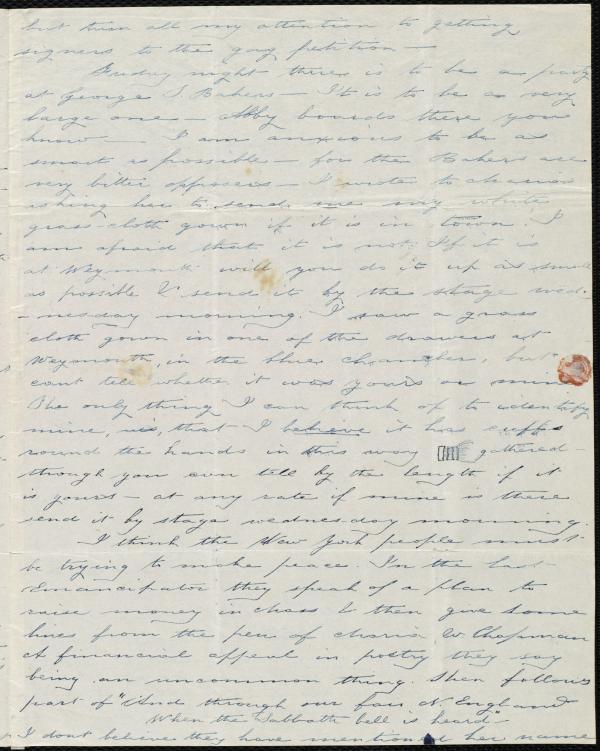 but turn all my attention to getting
signers to the gag petition —
Friday night there is to be a party
at George S. Bakers — It is to be a very
large one — Abby boards there you
know — I am anxious to be as
smart as possible — for the Bakers are
very bitter opposers — I wrote to
asking her to send me my white
grass-cloth gown if it is in town. I
am afraid that it is not; If it is
at Weymouth will you do it up as small
as possible & send it by the stage wed-
-nesday morning. I saw a grass
cloth gown in one of the drawers at
Weymouth, in the blue chamber, but
cant tell whether it was yours or mine
The only thing I can think of to identify
mine, is, that I believe it has cuffs
round the hands in this way gathered —
though you can tell by the length if it
is yours — at any rate if mine is there
send it by stage wednesday morning.
I think the New York people must
be trying to make peace. In the last
Emancipator they speak of a plan to
raise money in Mass & then give some
lines from the pen of Maria W. Chapman
A financial appeal in poetry they say
being an uncommon thing. Then follows
part of "And through our fair N England
When the Sabbath bell is heard"
I dont believe they have mentioned her name